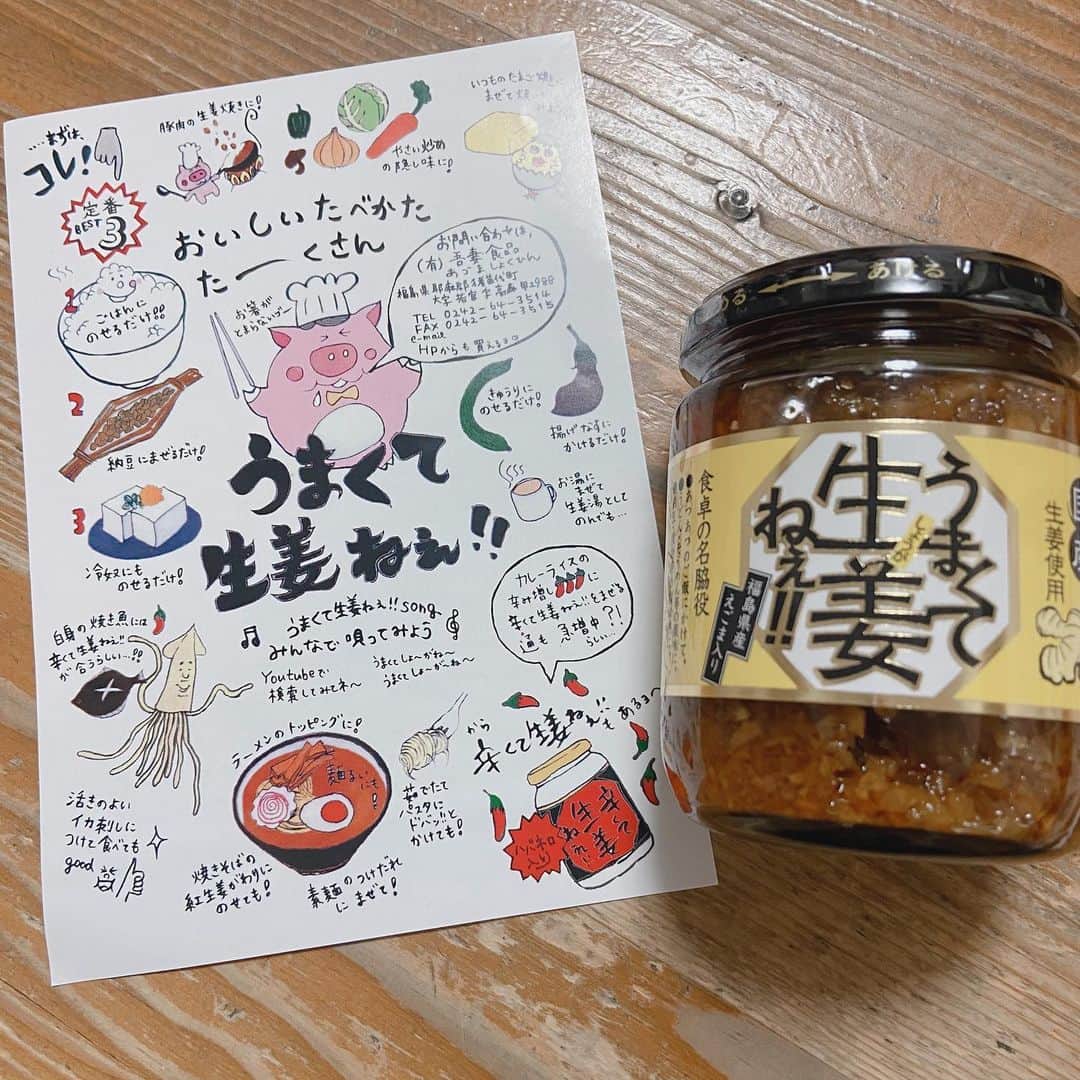 ....まずは、
コレ!
豚肉の生姜焼きに!
やさい炒め
の隠し味に!
いつものたまご焼
まぜて
定番
BEST
3
おいしいたべかた
たーくさん
お箸が
とまらないブー
お問い合わせは、
(有)吾妻食品
あづましょくひん
福島県耶麻郡猪苗代町
TEL 0242-64-3514
FAX 0242-64-3515
e-mail
HPからも買えるヨ
1
ごはんに
のせるだけ!!
2
納豆にまぜるだけ!
3
冷奴にも
のせるだけ!
きゅうりに
のせるだけ!
揚げなすに
かけるだけ!
お湯に
まぜて
生姜湯として
のんでも...
うまくて
生姜ねぇ!!
白身の焼き魚には
辛くて生姜ねぇ!!
が合うらしい...!!
うまくて生姜ねぇ!!song
みんなで唄ってみよう
Youtubeで
検索してみてネ〜
うまくてしょ〜がね〜
うまくてしょ〜がね〜
カレーライスの
辛み増しに
辛くて生姜ねぇ!!をまぜる
通も急増中
らしい...?!
活きのよい
イカ刺しに
つけて食べても
good
ラーメンのトッピングに!
麺るいにも!
焼きそばの
紅生姜がわりに
のせても!
素麺のつけだれ
にまぜて!
茹でたて
パスタに
ドバッと
かけても!
から
辛くて生姜ねぇ!!もあるヨ〜
辛くて
生姜
ねぇ!!
ハバネロ
入り
あける
める
生姜使用
うまくて
生姜
しょうが
ねぇ!!
福島県産
えごま入り
食卓の名脇役
●あつあつのご飯にかけて。